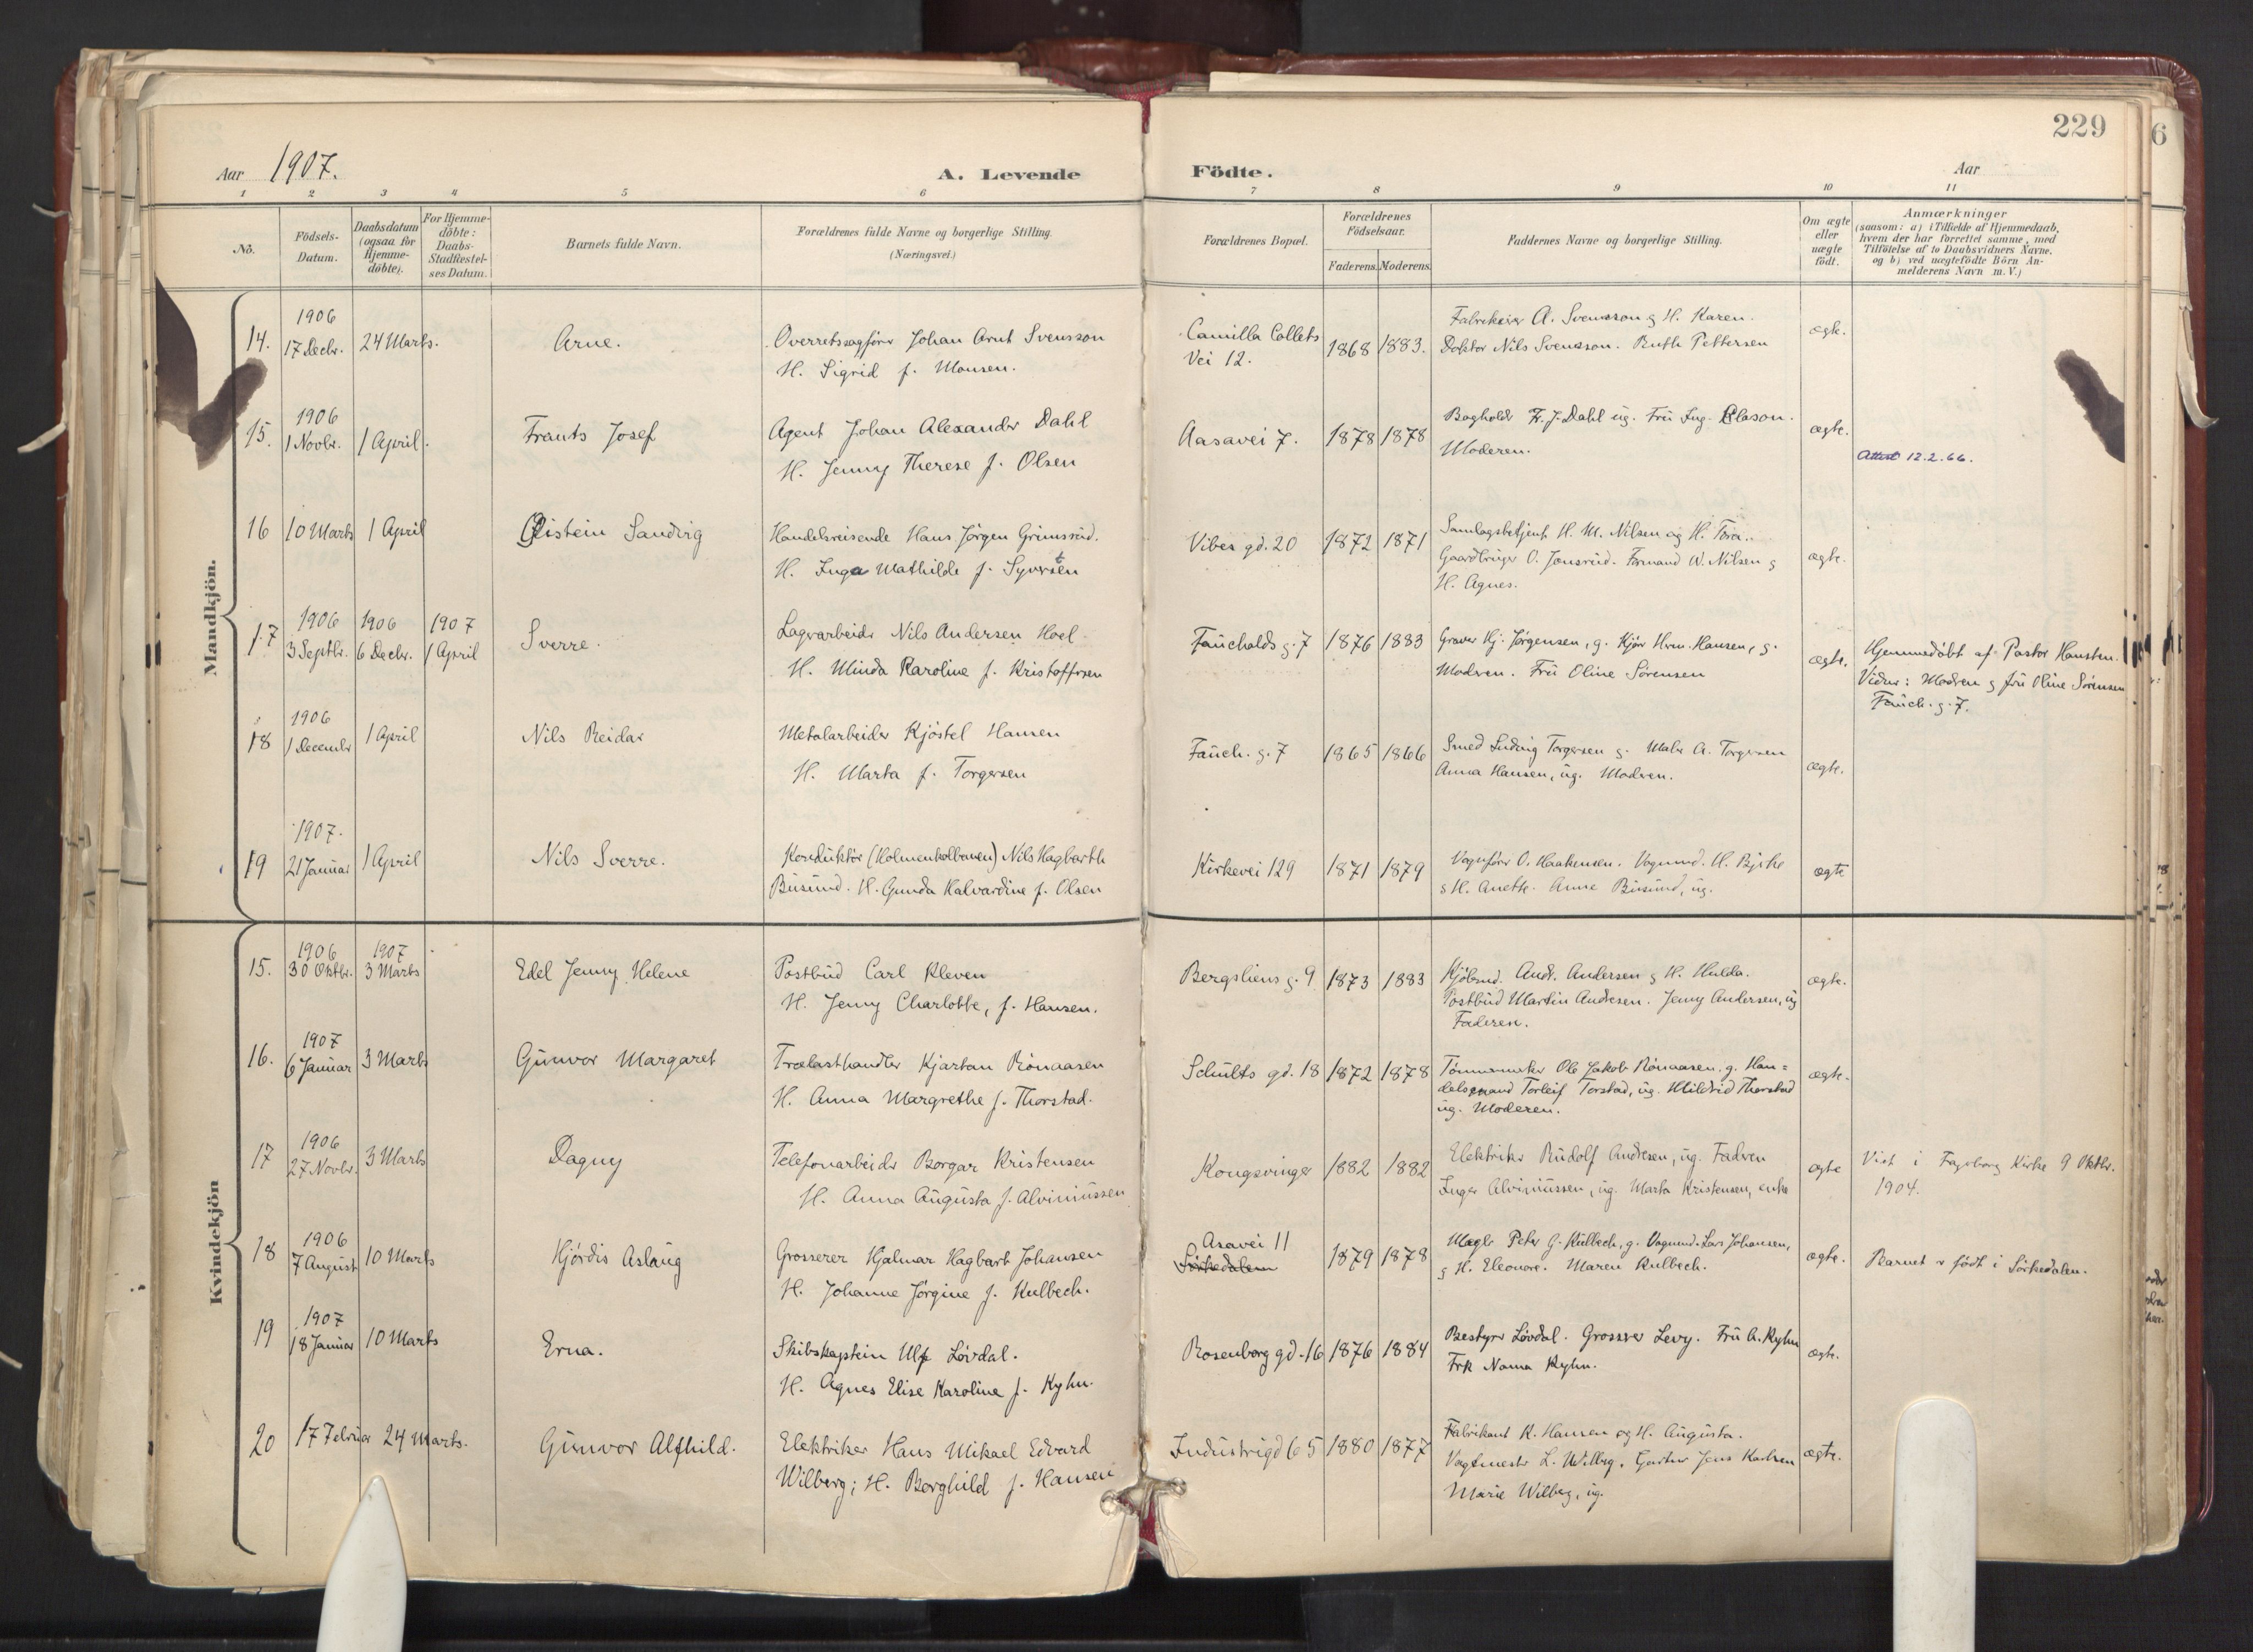 229
6
Aar 1907.
A. Levende
Födte.
Aar
1 2 3 4 5 6 7 8 9 10 11
Nô.
Födsels-
Datum.
Daabsdatum
(ogsaa for
Hjemme-
döbte).
For Hjemme-
döbte:
Daabs-
Stadfæstel-
ses Datum.
Barnets fulde Navn.
Forældrenes fulde Navne og borgerlige Stilling.
(Næringsvei.)
Forældrenes Bopæl.
Forældrenes
Födselsaar.
Faderens. Moderens.
Faddernes Navne og borgerlige Stilling.
Om ægte
eller
uægte
födt.
Anmærkninger
(saasom: a) i Tilfælde af Hjemmedaab,
hvem der har forrettet samme, med
Tilföielse af to Daabsvidners Navne,
og b) ved uægtefödte Börn An-
melderens Navn m. V.)
Mandkjön.
14.
1906
17 Decbr.
24 Marts.
Arne.
Overretssagförer Johan Arnt Svensson
H. Sigrid f. Monsen.
Camilla Collets
Vei 12.
1868 1883.
Fabrikeier A. Svensson g H. Karen.
Doktor Nils Svensson. Ruth Pettersen
ægte.
15.
1906
1 Novbr.
1 April.
Frants Josef
Agent Johan Alexander Dahl
H. Jenny Therese f. Olsen
Aasavei 7.
1878 1878
Bogholder Fr. J. Dahl ug. Fru Ing. Clason.
Moderen.
ægte.
Attest 12.2.66.
16
10 Marts
1 April
Øistein Sandvig
Handelsreisende Hans Jörgen Grimsrud.
H. Inga Mathilde f. Syversten
Vibes gd. 20
1872 1871
Samlagsbetjent H. M. Nilsen og H. Tora.
Gaardbruger O. Jonsrud. Formand W. Nilsen g
H. Agnes.
ægte.
17
1906
3 Septbr.
1906
6 Decbr.
1907
1 April
Sverre.
Lagerarbeider Nils Andersen Hoel.
H. Minda Karoline f. Kristoffersen
Fauchalds g. 7
1876 1883
Graver Hj. Jörgensen, g. Kjör Herm. Hansen, g.
Moderen. Fru Oline Sörensen
ægte.
Hjemmedöbt af Pastor Hansten.
Vidner: Moderen g fru Oline Sörensen
Fauch. g. 7.
18
1906
1 December
1 April
Nils Reidar
Metalarbeider Kjöstel Hansen
H. Marta f. Torgersen
Fauch. g. 7
1865 1866
Smed Ludvig Torgersen g. Maler A. Torgersen
Anna Hansen, ug. Moderen.
ægte.
19
1907.
21 Januar
1 April
Nils Sverre.
Konduktör (Holmenkolbanen) Nils Hagbarth
Busund. H. Gunda Halvardine f. Olsen
Kirkevei 129
1871 1879
Vognförer O. Haakensen. Vognmd. H. Bjerke
g H. Anette. Anne Busund, ug.
ægte
Kvindekjön
15.
1906
30 Oktbr.
1907
3 Marts
Edel Jenny Helene
Postbud Carl Kleven
H. Jenny Charlotte, f. Hansen.
Bergsliens g. 9
1873 1883
Kjöbmd. Andr. Andersen g H. Hulda.
Postbud Martin Andresen. Jenny Andersen, ug
Faderen.
ægte.
16.
1907
6 Januar
3 Marts
Gunvor Margaret
Trælasthandler Kjartan Rönaasen
H. Anna Margrethe f. Thorstad.
Schults gd. 18
1872 1878
Tömmermerker Ole Jakob Rönaasen, g. Han-
delsmand Torleif Torstad, ug. Mildrid Thorstad
ug. Moderen.
ægte.
17
1906
27 Novbr.
3 Marts
Dagny
Telefonarbeider Borgar Kristensen
H. Anna Augusta f. Alviniussen
Kongsvinger
1882 1882
Elektriker Rudolf Andresen, ug. Faderen
Inger Alviniussen, ug. Marta Kristensen, enke
ægte
Viet i Fagerborg Kirke 9 Oktbr.
1904.
18
1906
7 August
10 Marts
Hjördis Aslaug
Grosserer Hjalmar Hagbart Johansen
H. Johanne Jörgine f. Kulbech.
Asavei 11
Sörkedalen
1879 1878
Mægler Peter G. Kulbech, g. Vognmd. Lars Johansen,
g H. Eleonore. Maren Kulbech.
ægte.
Barnet er födt i Sörkedalen.
19
1907
18 Januar
10 Marts
Erna.
Skibskaptein Ulf Lövdal.
H. Agnes Elise Karoline f. Kyhn.
Rosenborg gd. 16
1876 1884
Bestyrer Lövdal. Grosserer Levy. Fru A. Kyhn
Frk Nanna Kyhn.
ægte.
20
17 Februar
24 Marts.
Gunvor Alfhild.
Elektriker Hans Mikael Edvard
Wilberg; H. Borghild f. Hansen
Industrigd 65
1880 1877
Fabrikant K. Hansen og H. Augusta.
Vagtmester L. Wilberg. Gartner Jens Karlsen
Marie Wilberg, ug.
ægte.